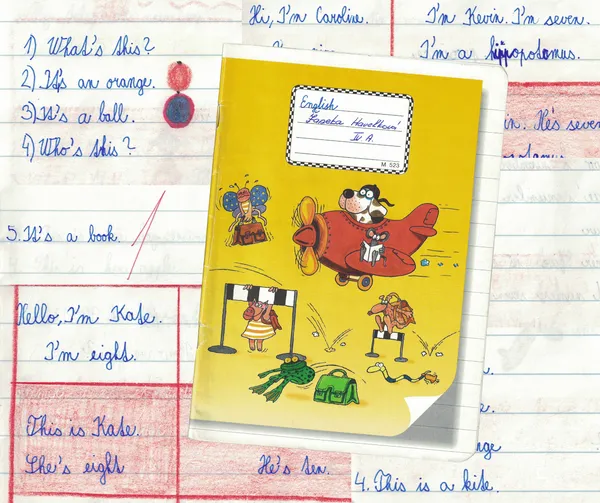 Hi, I'm Caroline.
I'm Kevin. I'm seven.
I'm a hippopotamus.
1) What's this?
2) It's an orange.
3) It's a ball.
4) Who's this?
5. It's a book.
English
Havelková
IV. A.
M 523
in. He's seven
Hello, I'm Kate.
I'm eight.
This is Kate.
She's eight
He's ten.
4. This is a kite.